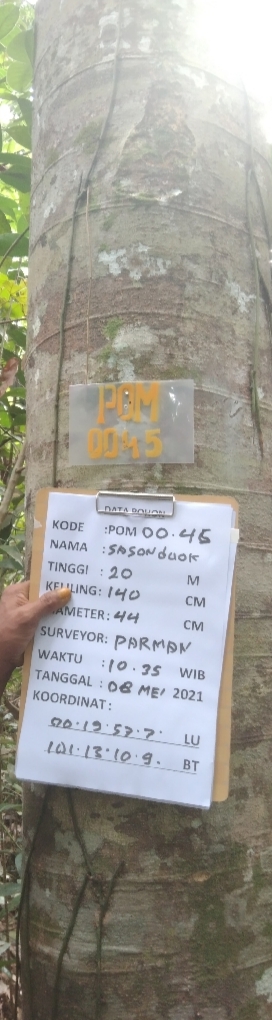 POM
0045
DATA POHON
KODE :POM 00.45
NAMA :SASONduok
TINGGI :20 M
KELILING: 140 CM
AMETER: 44 CM
SURVEYOR: PARMAN
WAKTU :10.35 WIB
TANGGAL :08 MEI 2021
KOORDINAT:
00.19.57.7. LU
101.13.10.9. BT